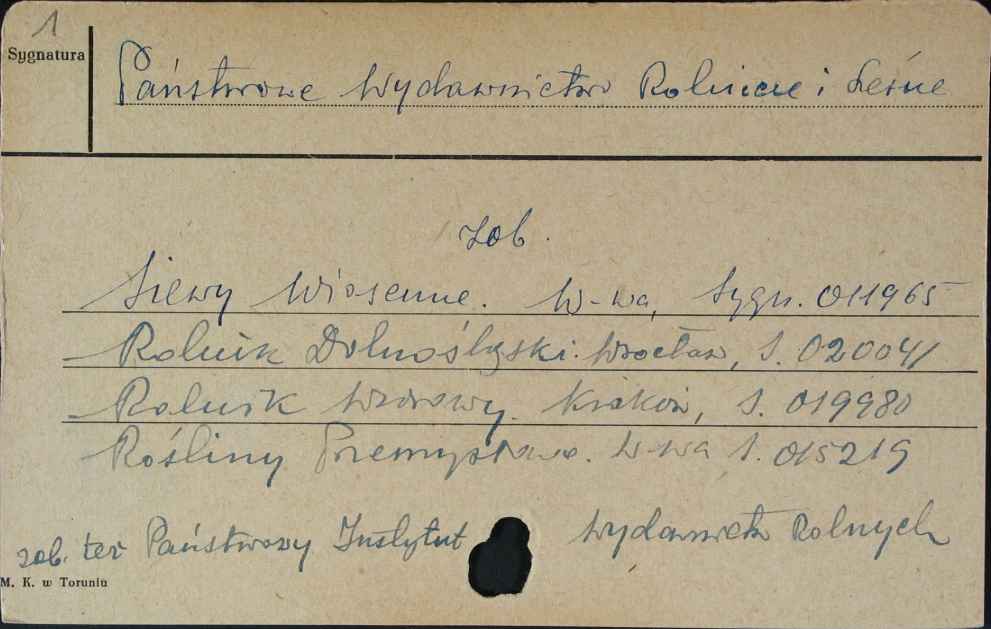 1
Sygnatura
Państwowe Wydawnictwo Rolnicze i Leśne
zob.
Siewy Wiosenne. W-wa, Sygn. 011965
Rolnik Dolnośląski. Wrocław, S. 020041
Rolnik Wzorowy. Kraków, S. 019980
Rośliny Przemysłowe. W-wa S. 015219
zob. też Państwowy Instytut Wydawnictw Rolnych
M. K. w Toruniu